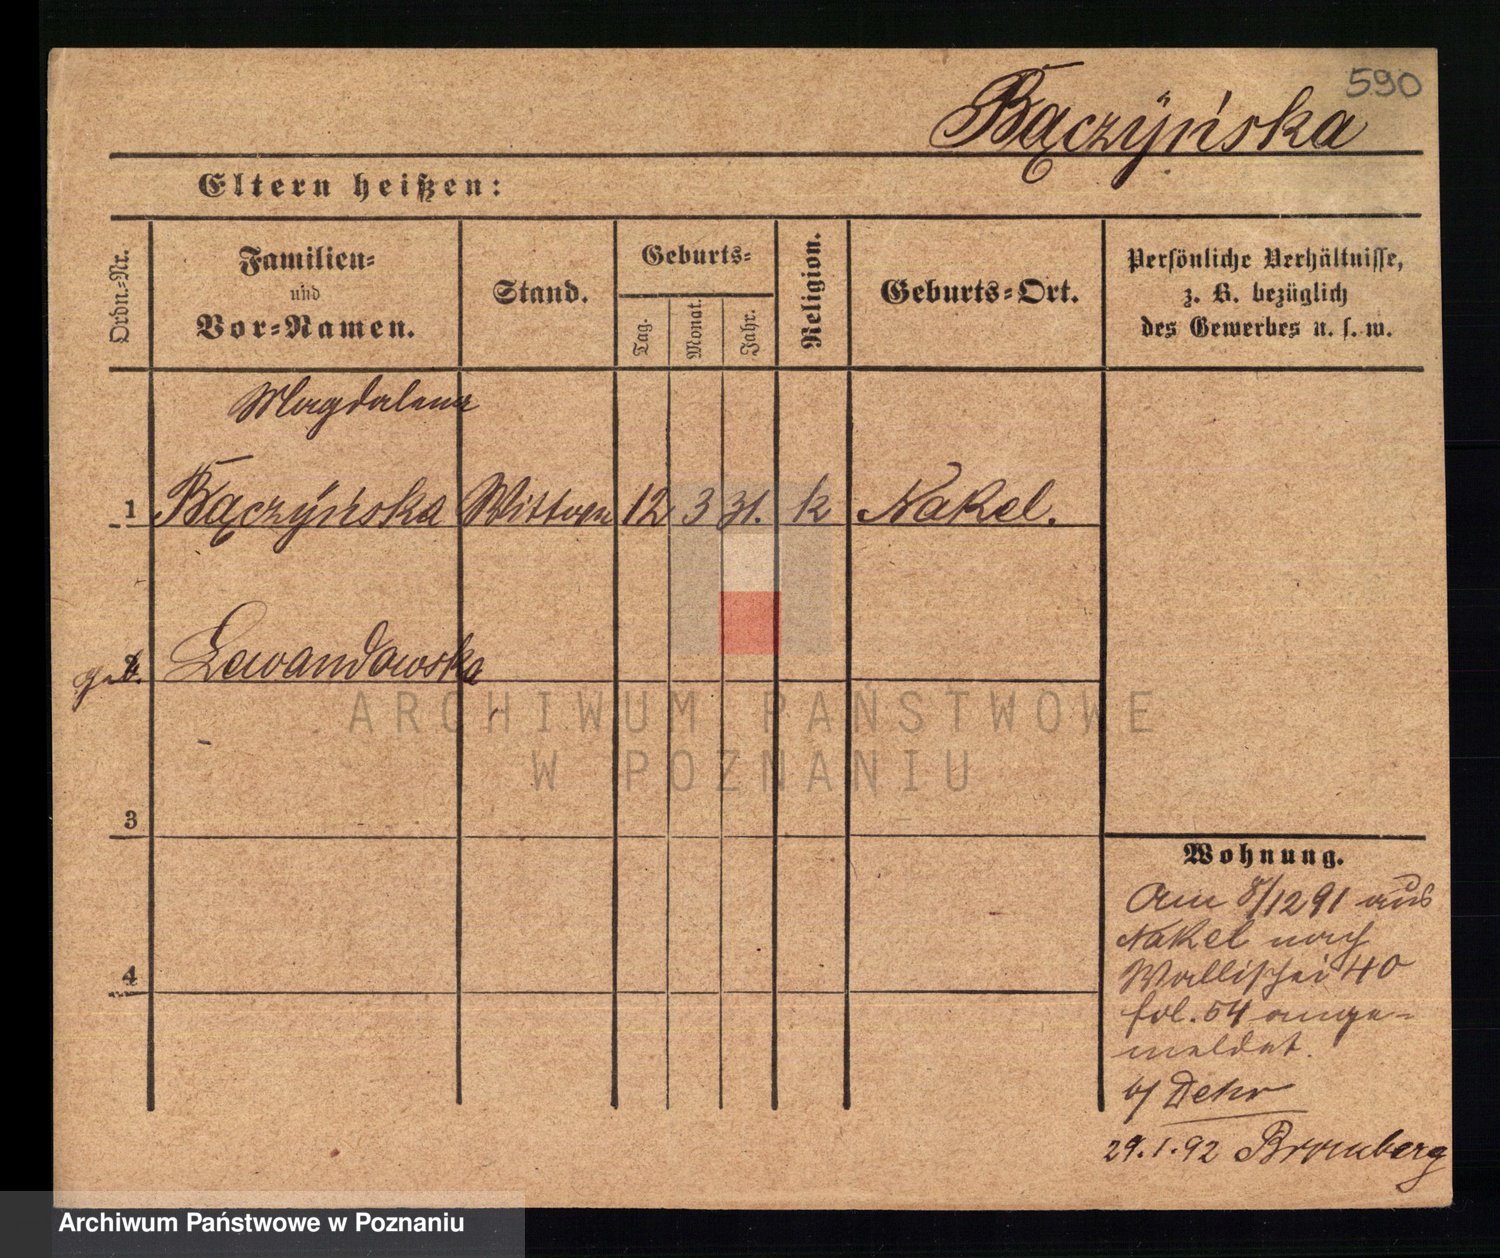 590
Bączyńska
Eltern heißen:
Ordn.-Nr.
Familien-
und
Vor-Namen.
Stand.
Geburts-
Tag.
Monat.
Jahr.
Religion.
Geburts-Ort.
Persönliche Verhältnisse,
z. B. bezüglich
des Gewerbes u. s. w.
Magdalena
1 Bączyńska Wittwe 12 3 31. k Nakel.
geb. Lewandowska
3
4
Wohnung.
Am 8/12 91 aus
Nakel nach
Wallischei 40
fol. 54 ange-
meldet.
b/ Dehr
29.1.92 Bromberg
ARCHIWUM PAŃSTWOWE
W POZNANIU
Archiwum Państwowe w Poznaniu